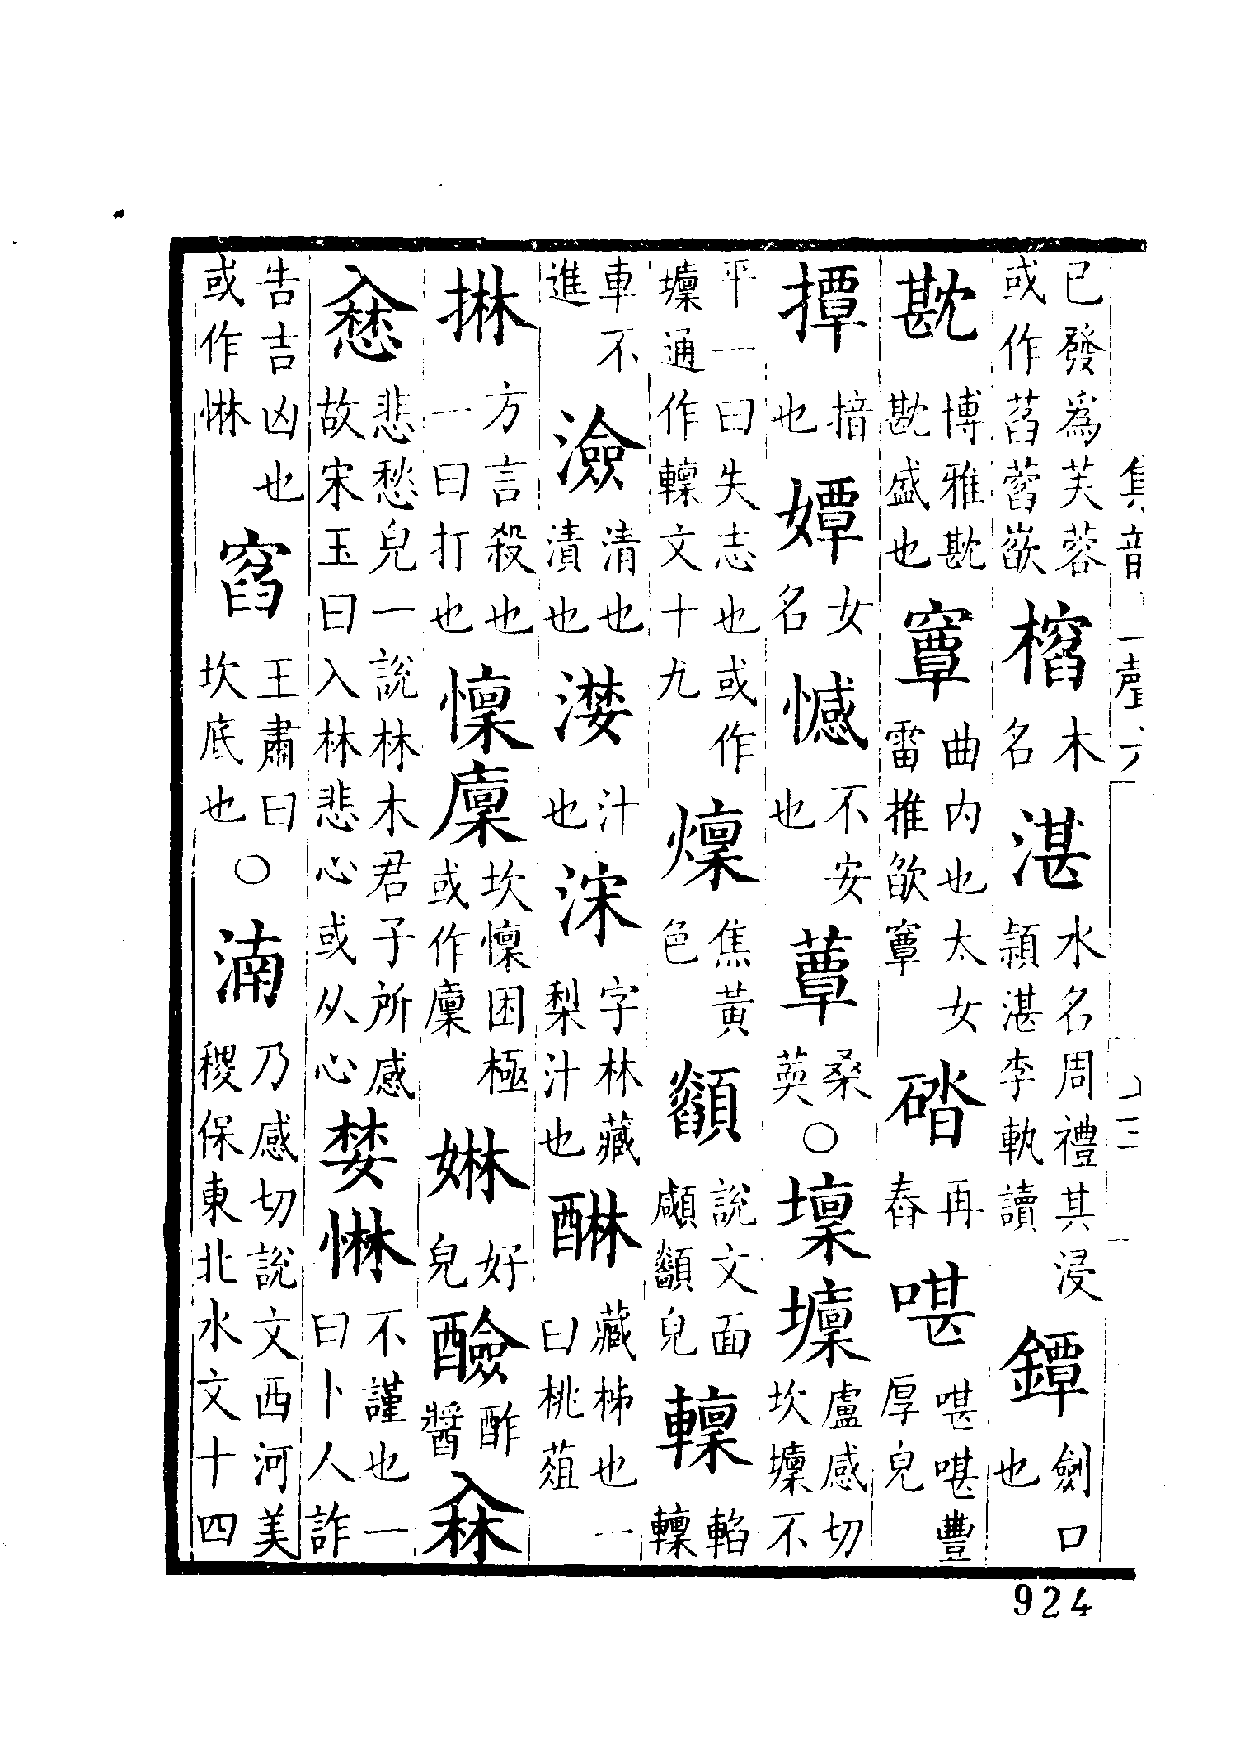 已發爲芙蓉或作萏䕃欿 木名 湛水名周禮其浸潁湛李軌讀 鐔劒口也
博雅盛也 曲内也太女靁推欿 再舂 啿啿啿豐厚皃
撢揞也 㜤女名 憾不安也 蕈桑 ○ 壈盧感切坎壈不
平一曰失志也或作壈通作轥文十九 燣焦黃色 顲說文面顑顲皃 轥䡡轥車不
進 清也漬也 漤汁也 字林藏梨汁也 醂藏柹也一曰桃菹
㨆方言殺也一曰打也 懍廩坎懍困極或作廩 㛦好皃 醶酢醬
悲愁皃一說林木君子所感故宋玉曰入林悲心或从心 婪惏不謹也一曰卜人詐
告吉凶也或作惏 窞王肅曰坎底也 ○ 湳乃感切說文西河美稷保東北水文十四
集韻 上聲六
924